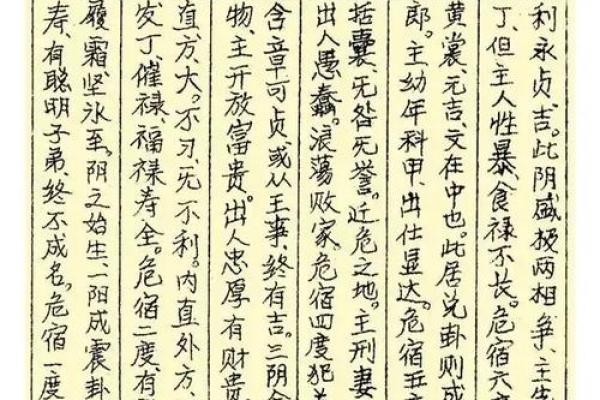 利永贞、吉。此阴盛极两相争、主
丁、但主人性暴、食禄不长。危宿六度
黄裳、元吉、文在中也。此居兑卦则成
郎。主幼年科甲、出仕显达。危宿五度
括囊、无咎无誉。近危之地。主刑妻
出人愚蠢。浪荡败家。危宿四度犯
含章可贞、或从王事、终有吉。三阴含
物、主开放富贵。出人忠厚有财贵
直、方、大。不习、无不利。内直外方、
发丁、催禄、福禄寿全。危宿二度、有
履霜坚冰至。阴之始生、一阳成震卦
寿、有聪明子弟、终不成名。危宿一度